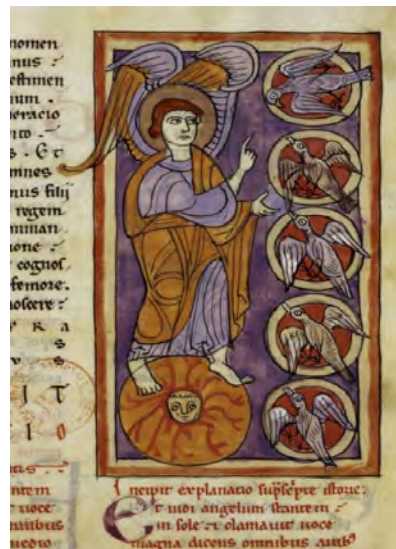 nomen
nus
estimen
nium
oracio
nto
s . Et
mnes
nus filij
regem
minan
ione
cognos
femore.
noscere
P R A
S
I T
I O
ntis
ntem
uoce
auibus
medio
Incipit explanatio sup͛sc͛pte istorie:
Et uidi angelum stantem
in sole ⁊ clamauit uoce
magna dicens omnibus auib9